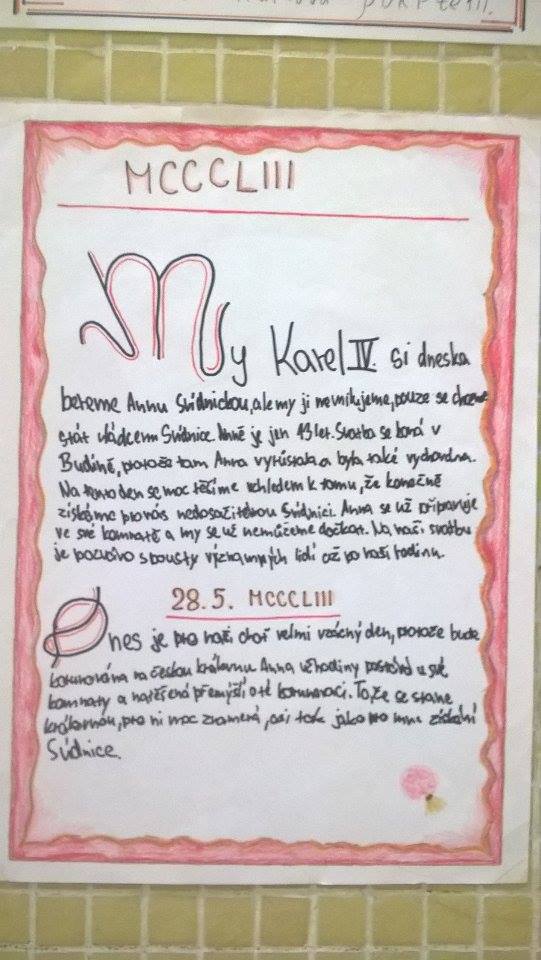 MCCCLIII
My Karel IV. si dneska
bereme Annu Svídnickou, ale my ji nemilujeme, pouze se chceme
stát vládcem Svídnice. Anně je jen 13 let. Svatba se koná v
Budíně, protože tam Anna vyrůstala a byla také vychována.
Na tento den se moc těšíme vzhledem k tomu, že konečně
získáme pro nás nedosažitelnou Svídnici. Anna se už připravuje
ve své komnatě a my se už nemůžeme dočkat. Na naši svatbu
je pozváno spousty významných lidí až po naši rodinu.
28.5. MCCCLIII
Dnes je pro naši choť velmi vzácný den, protože bude
korunována na českou královnu Anna už hodiny postává u své
komnaty a natěšená přemýšlí o té korunovaci. To že se stane
královnou, pro ni moc znamená, asi tak jako pro mne získání
Svídnice.